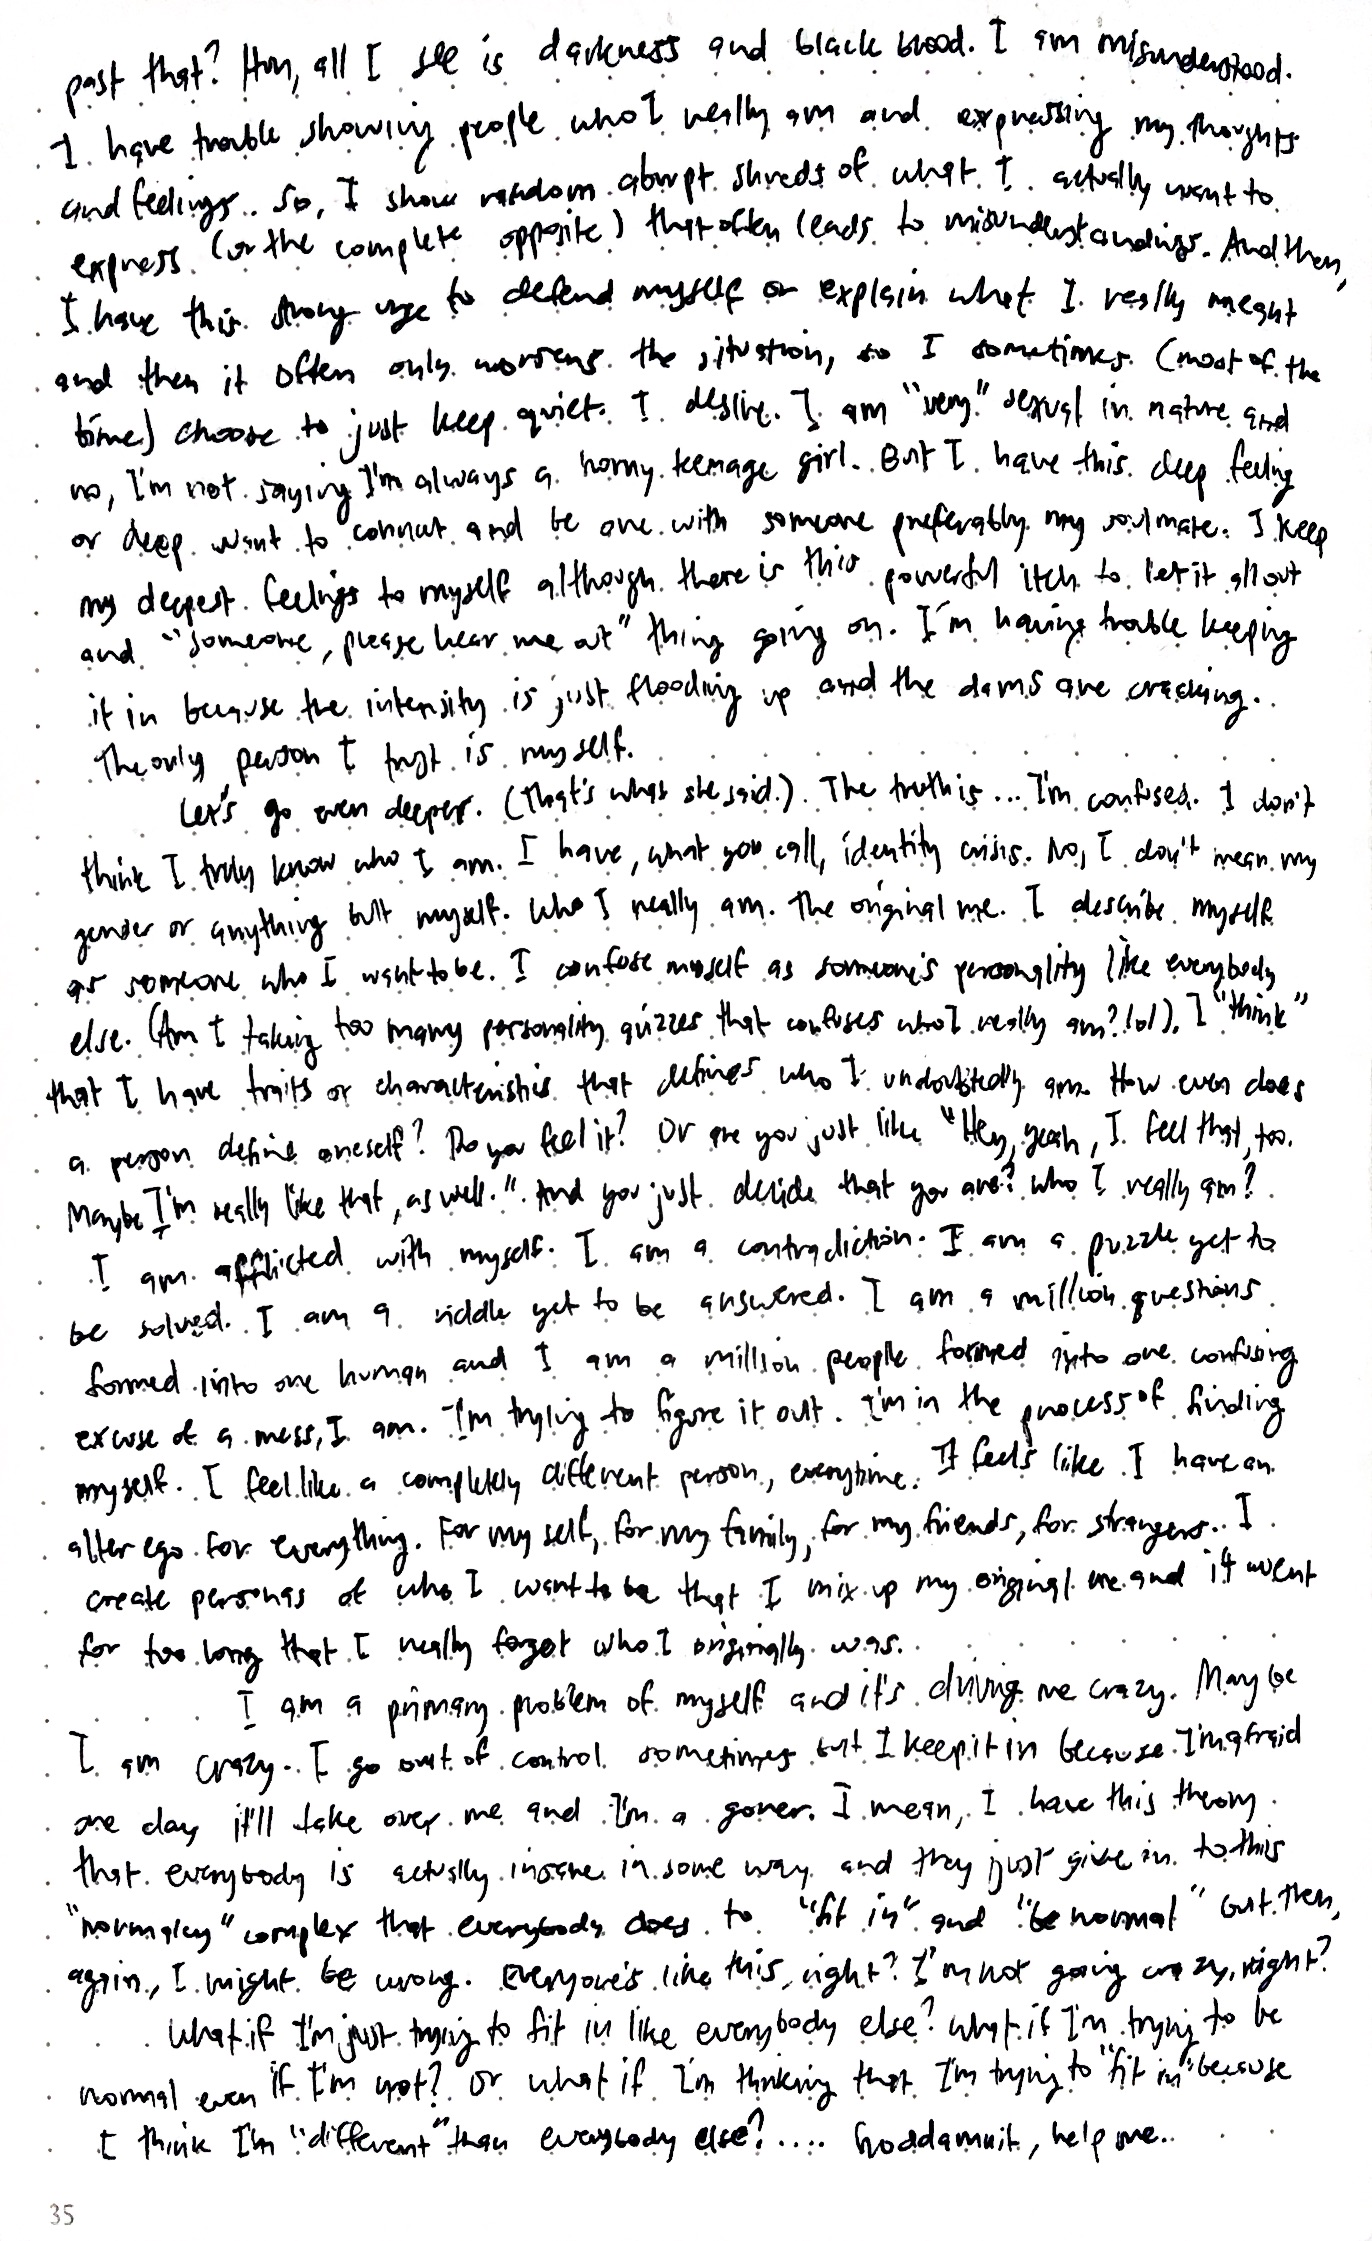 past that? Hm, all I see is darkness and black blood. I am misunderstood.
I have trouble showing people who I really am and expressing my thoughts
and feelings.. So, I show random abrupt shreds of what I actually want to
express (or the complete opposite) that often leads to misunderstandings. And then,
I have this strong urge to defend myself or explain what I really meant
and then it often only worsens the situation, so I sometimes (most of the
time) choose to just keep quiet. I desire. I am "very" sexual in nature and
no, I'm not saying I'm always a horny teenage girl. But I have this deep feeling
or deep want to connect and be one with someone preferably my soulmate. I keep
my deepest feelings to myself although there is this powerful itch to let it all out
and "someone, please hear me out" thing going on. I'm having trouble keeping
it in because the intensity is just flooding up and the dams are cracking..
The only person I trust is myself.
Let's go even deeper. (That's what she said.) The truth is... I'm confused. I don't
think I truly know who I am. I have, what you call, identity crisis. No, I don't mean my
gender or anything but myself. Who I really am. The original me. I describe myself
as someone who I want to be. I confuse myself as someone's personality like everybody
else. (Am I taking too many personality quizzes that confuses who I really am? lol). I "think"
that I have traits or characteristics that defines who I undoubtedly am. How even does
a person define oneself? Do you feel it? Or are you just like "Hey, yeah, I feel that, too.
Maybe I'm really like that, as well.". And you just decide that you are? Who I really am?
I am afflicted with myself. I am a contradiction. I am a puzzle yet to
be solved. I am a riddle yet to be answered. I am a million questions
formed into one human and I am a million people formed into one confusing
excuse of a mess, I am. I'm trying to figure it out. I'm in the process of finding
myself. I feel like a completely different person, everytime. It feels like I have an
alter ego for everything. For my self, for my family, for my friends, for strangers.. I
create personas of who I want to be that I mix up my original me and it went
for too long that I really forgot who I originally was..
I am a primary problem of myself and it's driving me crazy. Maybe
I am crazy.. I go out of control sometimes but I keep it in because I'm afraid
one day it'll take over me and I'm a goner. I mean, I have this theory
that everybody is actually insane in some way and they just give in to this
"normalcy" complex that everybody does to "fit in" and "be normal" but then,
again, I might be wrong. Everyone's like this, right? I'm not going crazy, right?
What if I'm just trying to fit in like everybody else? What if I'm trying to be
normal even if I'm not? Or what if I'm thinking that I'm trying to "fit in" because
I think I'm "different" than everybody else?.... Goddamnit, help me..
35